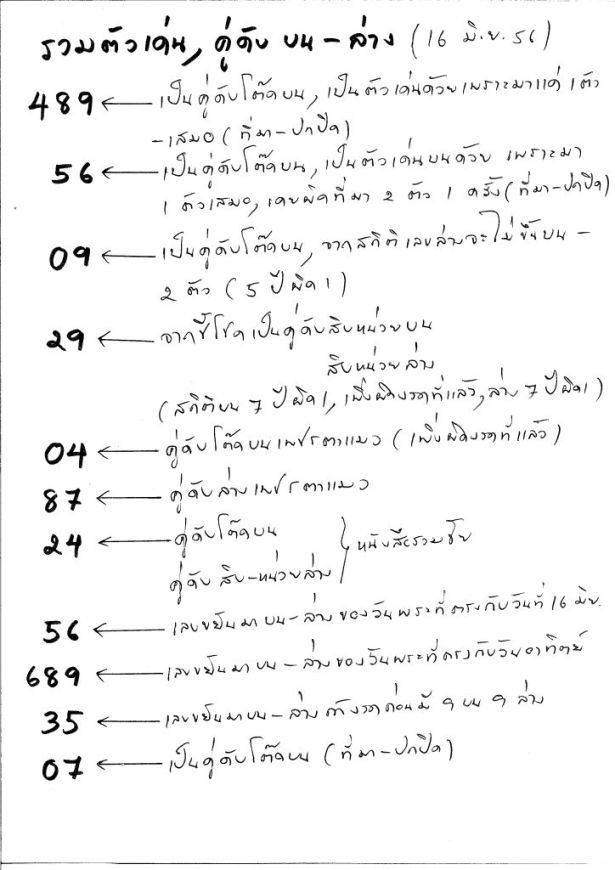 รวมตัวเด่น, คู่ดับ บน - ล่าง (16 มิ.ย. 56)
489 ← เป็นคู่ดับโต๊ดบน, เป็นตัวเด่นด้วยเพราะมาแค่ 1 ตัว
- เสมอ (ที่มา - ปกปิด)
56 ← เป็นคู่ดับโต๊ดบน, เป็นตัวเด่นบนด้วย เพราะมา
1 ตัวเสมอ, เคยผิดที่มา 2 ตัว 1 ครั้ง (ที่มา - ปกปิด)
09 ← เป็นคู่ดับโต๊ดบน, จากสถิติ เลขล่างจะไม่ขึ้นบน -
2 ตัว (5 ปี ผิด 1)
29 ← จากชี้โชค เป็นคู่ดับสิบหน่วยบน
สิบหน่วยล่าง
(สถิติบน 7 ปี ผิด 1, เพิ่งผิดงวดที่แล้ว, ล่าง 7 ปี ผิด 1)
04 ← คู่ดับโต๊ดบนเพชรตาแมว (เพิ่งผิดงวดที่แล้ว)
87 ← คู่ดับล่างเพชรตาแมว
24 ← คู่ดับโต๊ดบน } หนังสือรวมชัย
คู่ดับ สิบ - หน่วยล่าง
56 ← เลขขยันมา บน - ล่าง ของวันพระที่ตรงกับวันที่ 16 มิย.
689 ← เลขขยันมา บน - ล่าง ของวันพระที่ตรงกับวันอาทิตย์
35 ← เลขขยันมา บน - ล่าง ถ้างวดก่อนมี 9 บน 9 ล่าง
07 ← เป็นคู่ดับโต๊ดบน (ที่มา - ปกปิด)